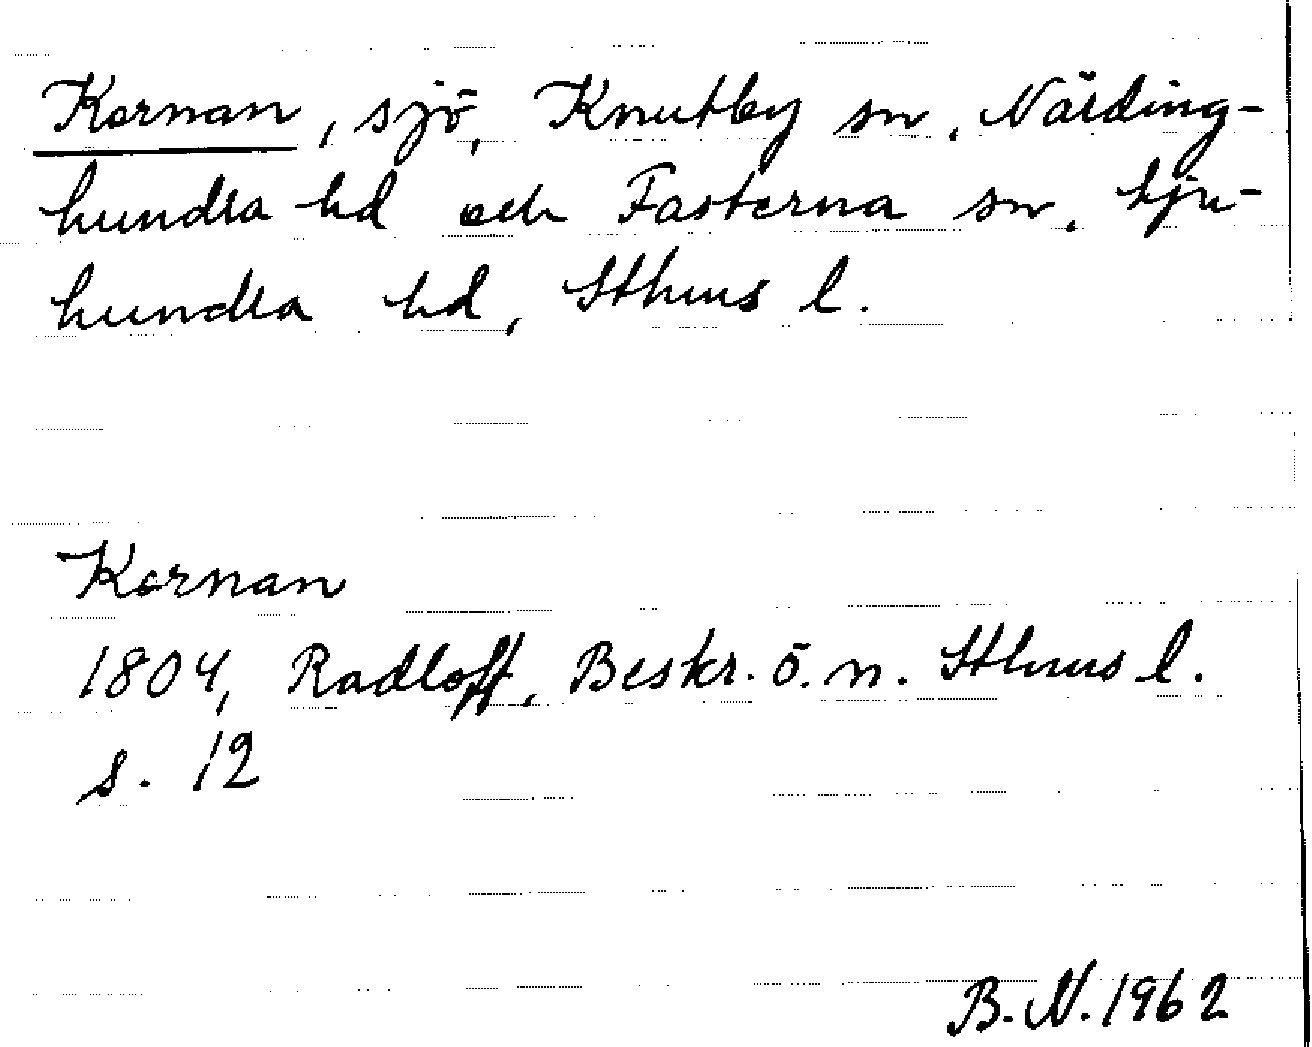 Kornan, sjö, Knutby sn, Närding-
hundra hd och Fasterna sn, Sju-
hundra hd, Sthms l.
Kornan
1804, Radloff, Beskr. ö. n. Sthms l.
s. 12
B. N. 1962